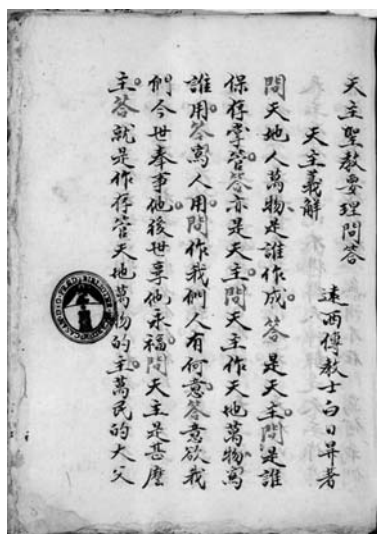 天主聖教要理問答
遠西傳教士白日昇著
天主義解
問天地人萬物是誰作成。答是天主。問是誰
保存掌管。答亦是天主。問天主作天地萬物為
誰用。答為人用。問作我們人有何意。答意欲我
們今世奉事他。後世享他永福。問天主是甚麼
主。答就是作存管天地萬物的主。萬民的大父